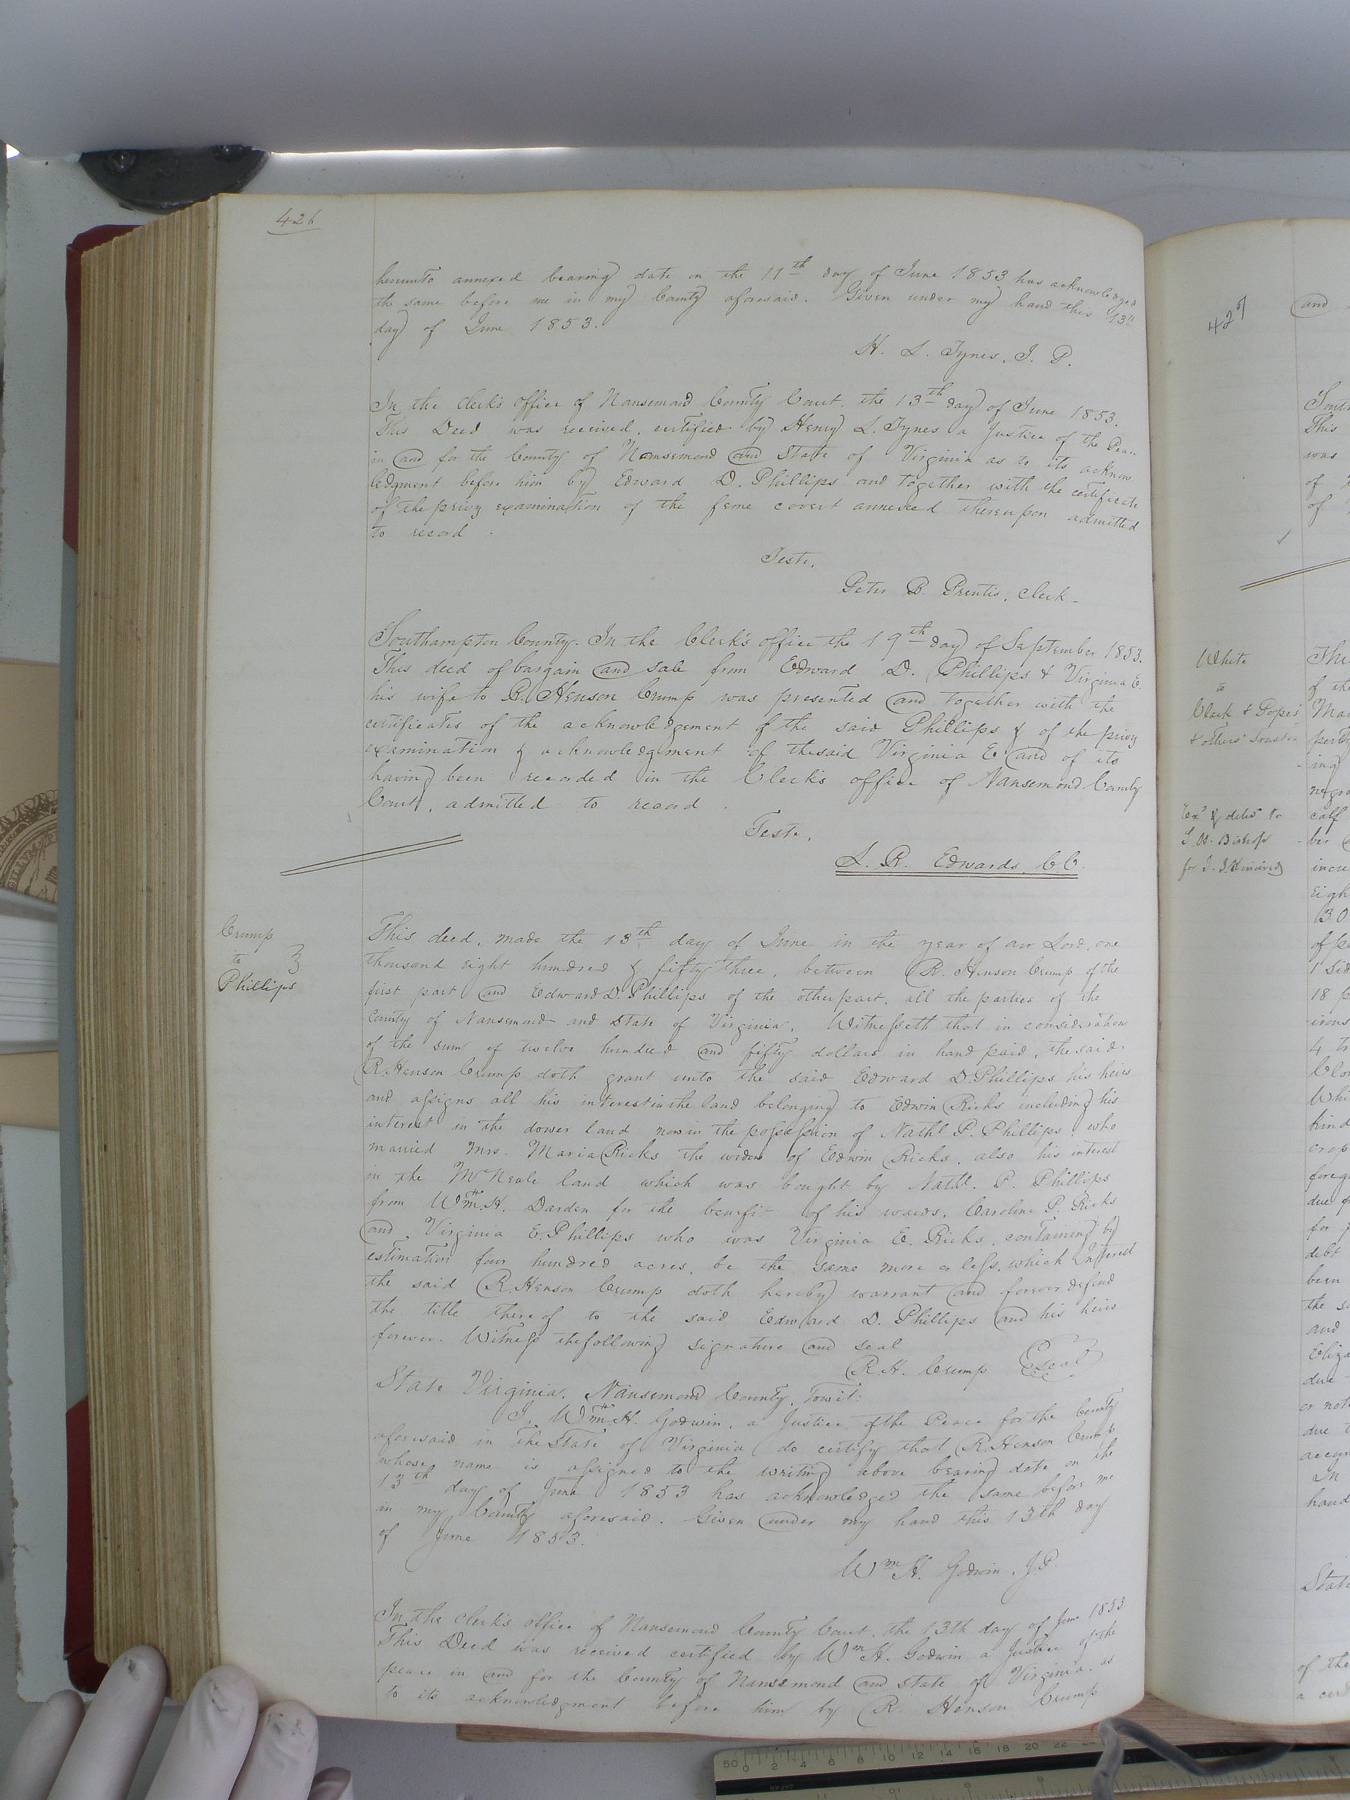 426
hereunto annexed bearing date on the 11th day of June 1853 has acknowledged
the same before me in my County aforesaid. Given under my hand this 13th
day of June 1853.
H. L. Tynes, J. P.
In the Clerk's office of Nansemond County Court, the 13th day of June 1853.
This Deed was received, certified by Henry L. Tynes a Justice of the Peace
in and for the County of Nansemond and State of Virginia as to its acknow
ledgment before him by Edward D. Phillips and together with the certificate
of the privy examination of the feme covert annexed thereupon admitted
to record.
Teste,
Peter B Prentis, Clerk
Southampton County. In the Clerk's office the 19th day of September 1853.
This deed of bargain and sale from Edward D. Phillips & Virginia E.
his wife to R. Henson Crump was presented and together with the
certificates of the acknowledgement of the said Phillips & of the privy
examination & acknowledgment of the said Virginia E. and of its
having been recorded in the Clerk's office of Nansemond County
Court, admitted to record.
Teste,
L. R. Edwards, C C.
Crump
to
Phillips
This deed, made the 13th day of June in the year of our Lord, one
thousand eight hundred & fifty three, between R. Henson Crump of the
first part and Edward D. Phillips of the other part, all the parties of the
County of Nansemond and State of Virginia, Witnesseth that in consideration
of the sum of twelve hundred and fifty dollars in hand paid, the said
R. Henson Crump doth grant unto the said Edward D. Phillips his heirs
and assigns all his interest in the land belonging to Edwin Ricks including his
interest in the dower land now in the possession of Nathl P. Phillips, who
married Mrs. Maria Ricks the widow of Edwin Ricks, also his interest
in the McNeale land which was bought by Nathl. P. Phillips
from Wm. H. Darden for the benefit of his wards, Caroline P. Ricks
and Virginia E. Phillips who was Virginia E. Ricks, containing by
estimation four hundred acres, be the same more or less, which Interest
the said R. Henson Crump doth hereby warrant and forever defend
the title thereof to the said Edward D. Phillips and his heirs
forever. Witness the following signature and seal
R. H. Crump Seal
State Virginia, Nansemond County, Towit:
I, Wm. H. Godwin, a Justice of the Peace for the County
aforesaid in the State of Virginia do certify that R. Henson Crump
whose name is assigned to the writing above bearing date on the
13th day of June 1853 has acknowledged the same before me
in my County aforesaid. Given under my hand this 13th day
of June 1853.
Wm H. Godwin, J. P.
In the Clerk's office of Nansemond County Court, the 13th day of June 1853
This Deed was received certified by Wm H. Godwin a Justice of the
peace in and for the County of Nansemond and State of Virginia, as
to its acknowledgment before him by R. Henson Crump
427
and
This
was
of
of
White
to
Clerk & Pope's
& others
This
for
debt
been
and
due
or not
due
In
hand
State
of the